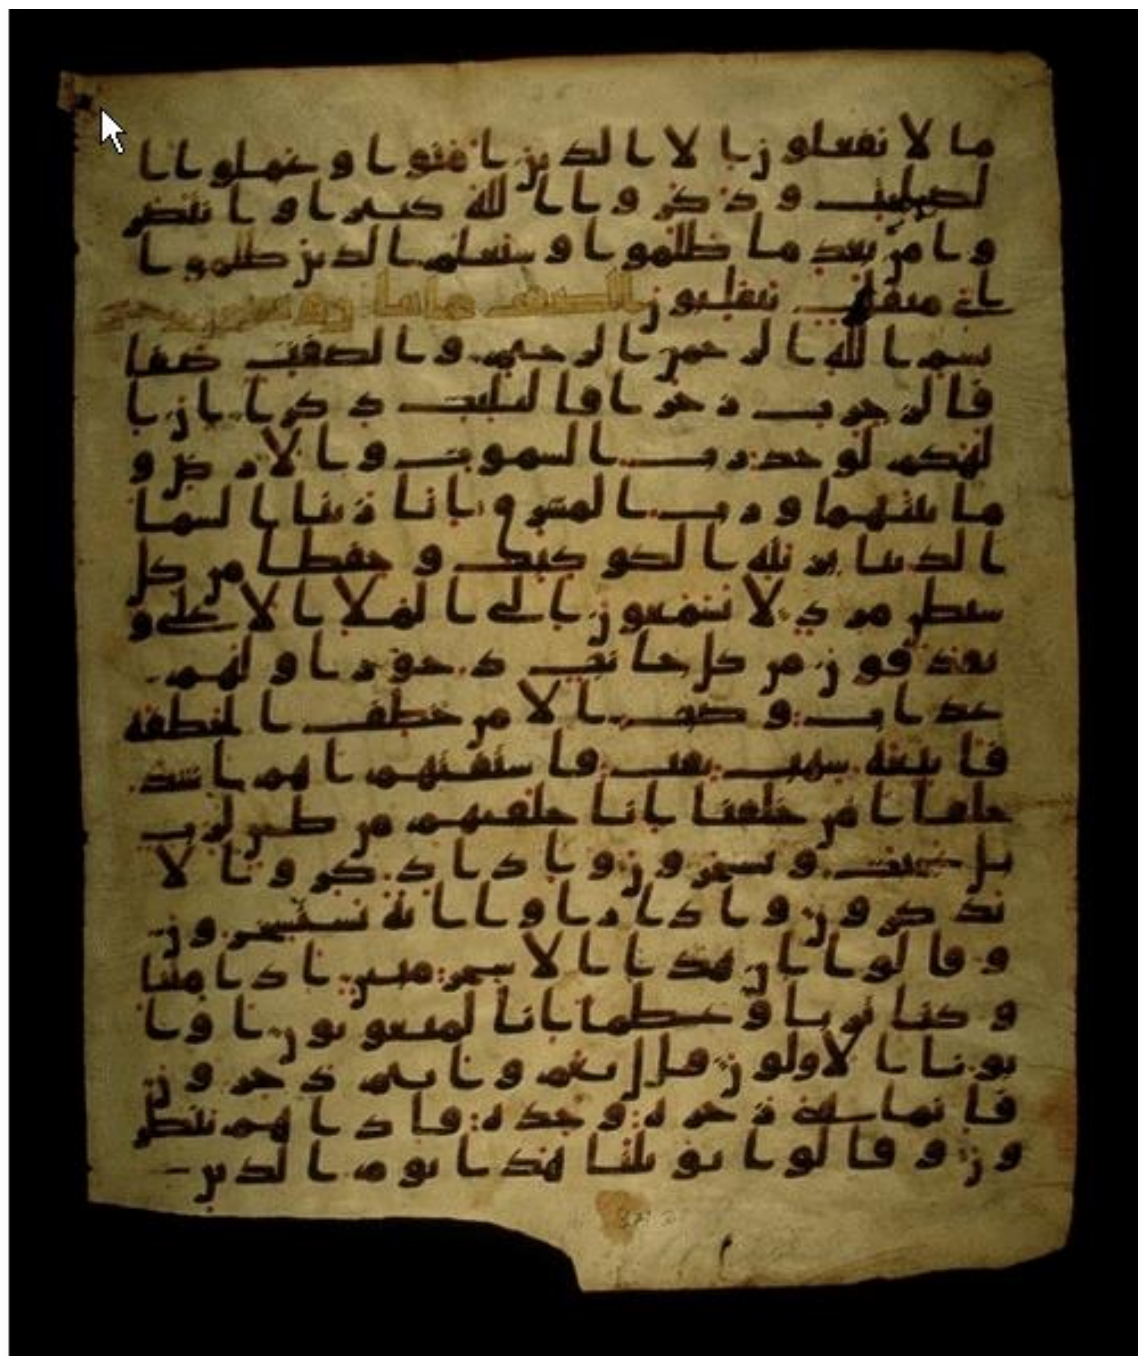 ما لا يفعلون الا الذين امنوا وعملوا ا
لصلحت وذكروا الله كثيرا وانتصر
وا من بعد ما ظلموا وسيعلم الذين ظلموا ا
ي منقلب ينقلبون الصفت
بسم الله الرحمن الرحيم والصفت صفا
فالزجرت زجرا فالتليت ذكرا ان ا
لهكم لوحد رب السموت والارض و
ما بينهما ورب المشرق انا زينا السما
الدنيا بزينه الكوكب وحفظا من كل
شيطن مرد لا يسمعون الى الملا الاعلى و
يقذفون من كل جانب دحورا ولهم
عذاب وصب الا من خطف الخطفه
فاتبعه شهب ثقب فاستفتهم اهم اشد
خلقا ام من خلقنا انا خلقنهم من طين لزب
بل عجبت ويسخرون واذا ذكروا لا
يذكرون واذا راوا ايه يستسخرون
وقالوا ان هذا الا سحر مبين اذا متنا
وكنا تربا وعظما انا لمبعوثون او ا
باونا الاولون قل نعم وانتم دخرون
فانما هي زجره وحده فاذا هم ينظر
ون وقالوا يويلنا هذا يوم الدين